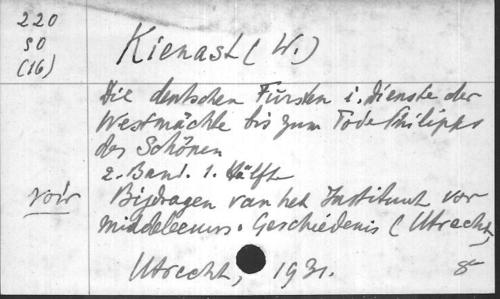 220
SO
(16)
Kienast (W.)
Die deutschen Fürsten i. Dienste der
Westmächte bis zum Tode Philipps
des Schönen
2. Band. 1. Hälfte
voir Bijdragen van het Instituut vor
middeleeuws. Geschiedenis (Utrecht,
Utrecht, 1931. 8°